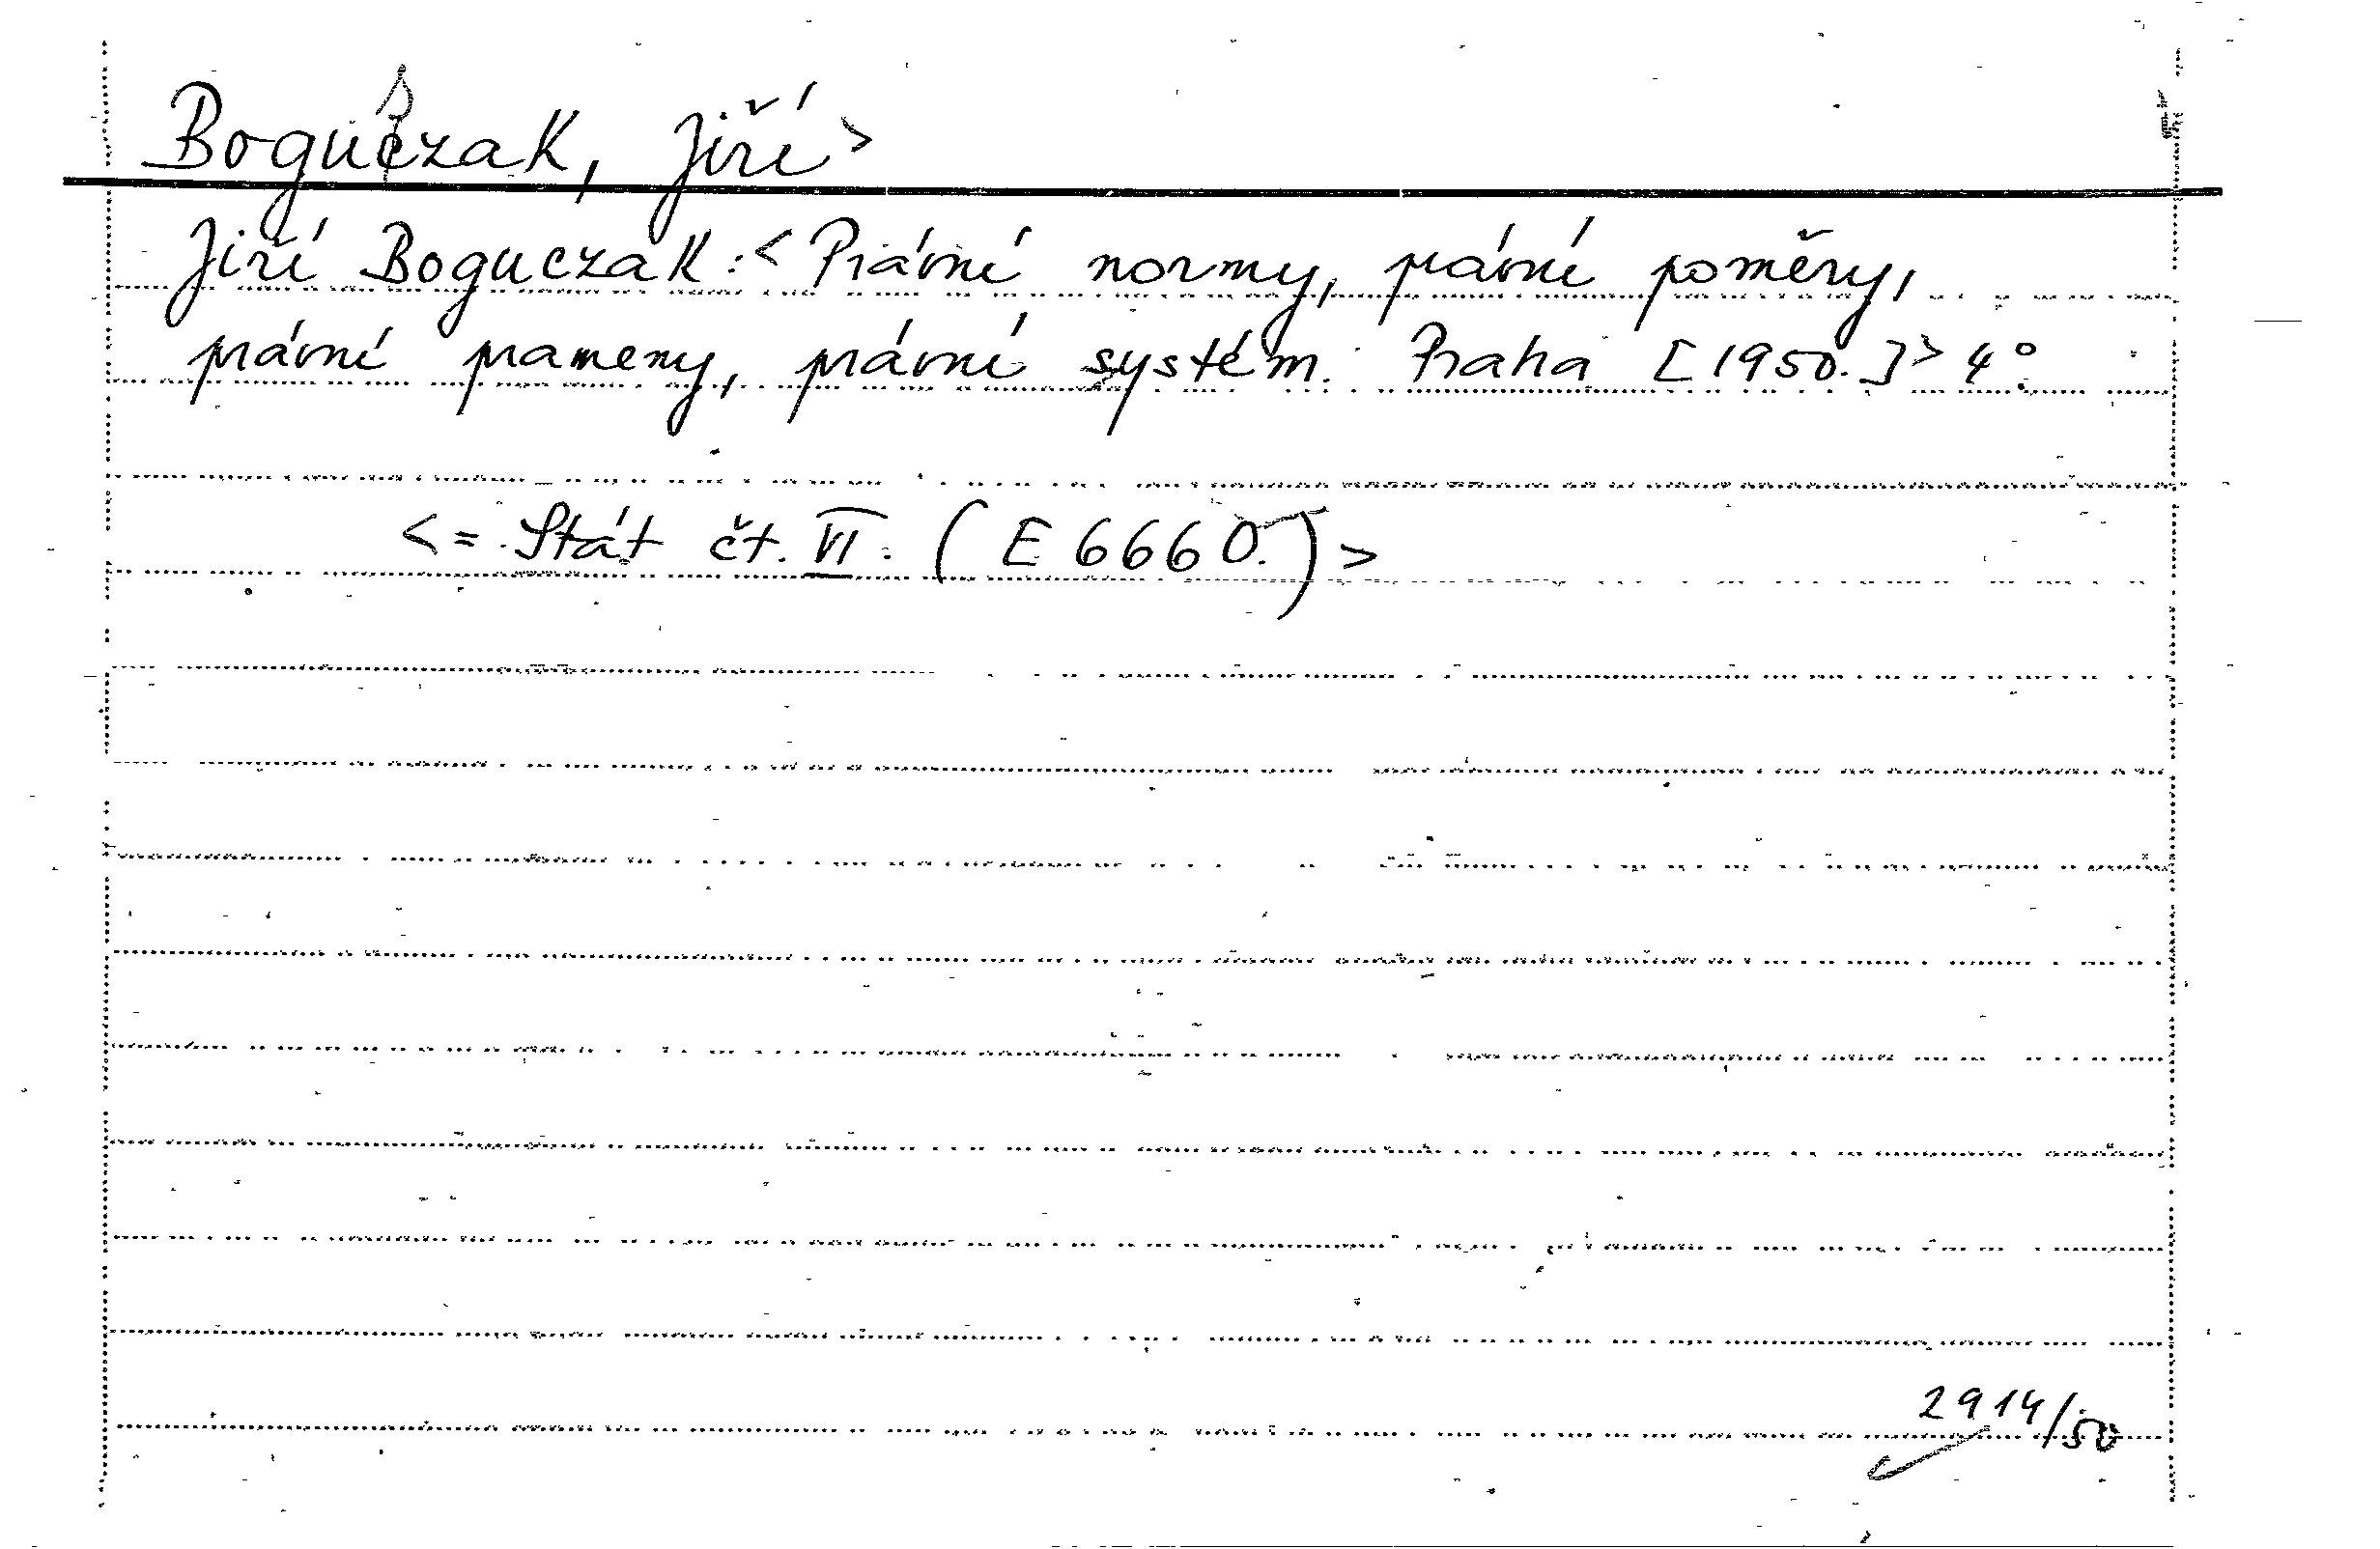 Boguczak, Jiří>
Jiří Boguczak:< Právní normy, právní poměry,
právní prameny, právní systém. Praha [1950.]> 4°.
<=. Stát čt. VI. (E 6660.)>
2914/50